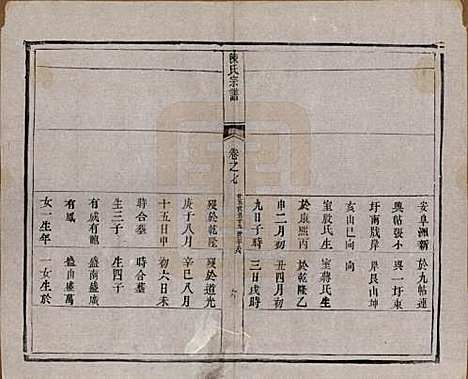 安阜洲新 於九帖連
興帖張小 興一圩東
圩南戤岸 岸艮山坤
亥山巳向 向
室殷氏生 室蔣氏生
於康熙丙 於乾隆乙
申二月初 丑四月初
九日子時 三日戌時
陳氏宗譜
卷之七
歿於乾隆 歿於道光
庚子八月 辛巳八月
十五日申 初六日未
時合墓 時合墓
生三子 生四子
有威有 盛南盛廣
有鳳 盛由盛萬
女一生年 一女生於